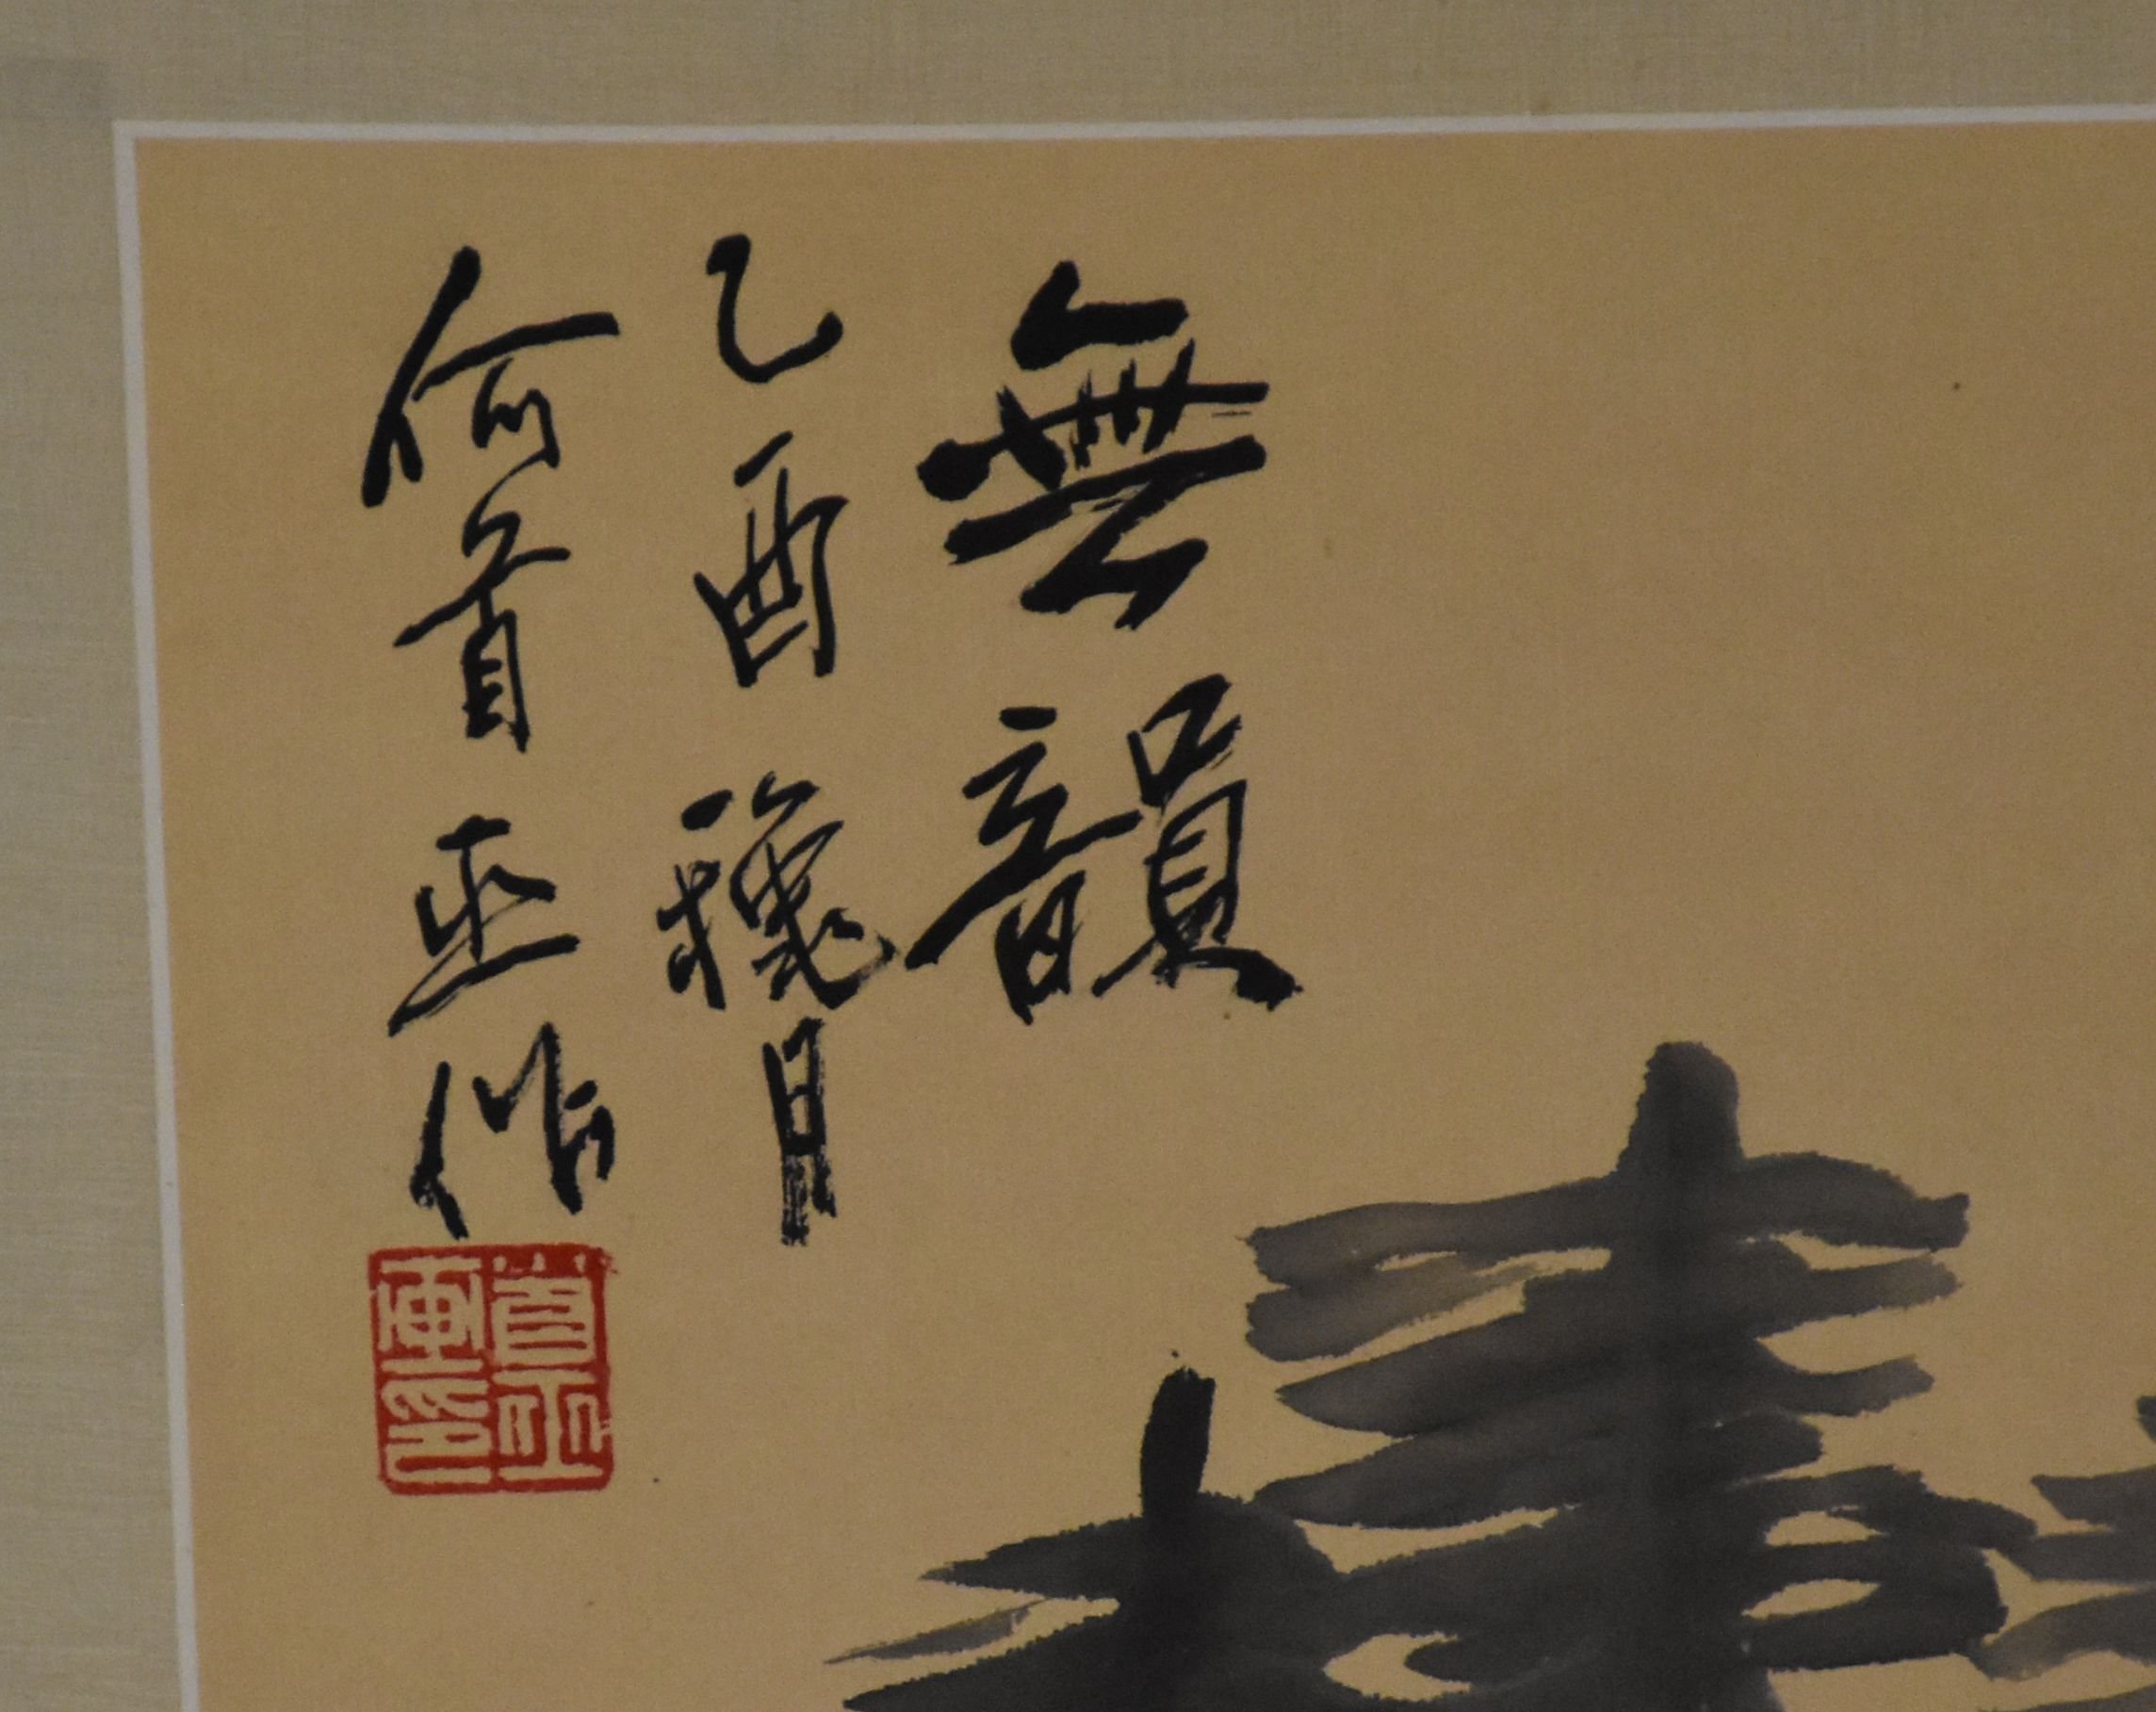 無韻
乙酉穐月
何首巫作
首巫
畫印